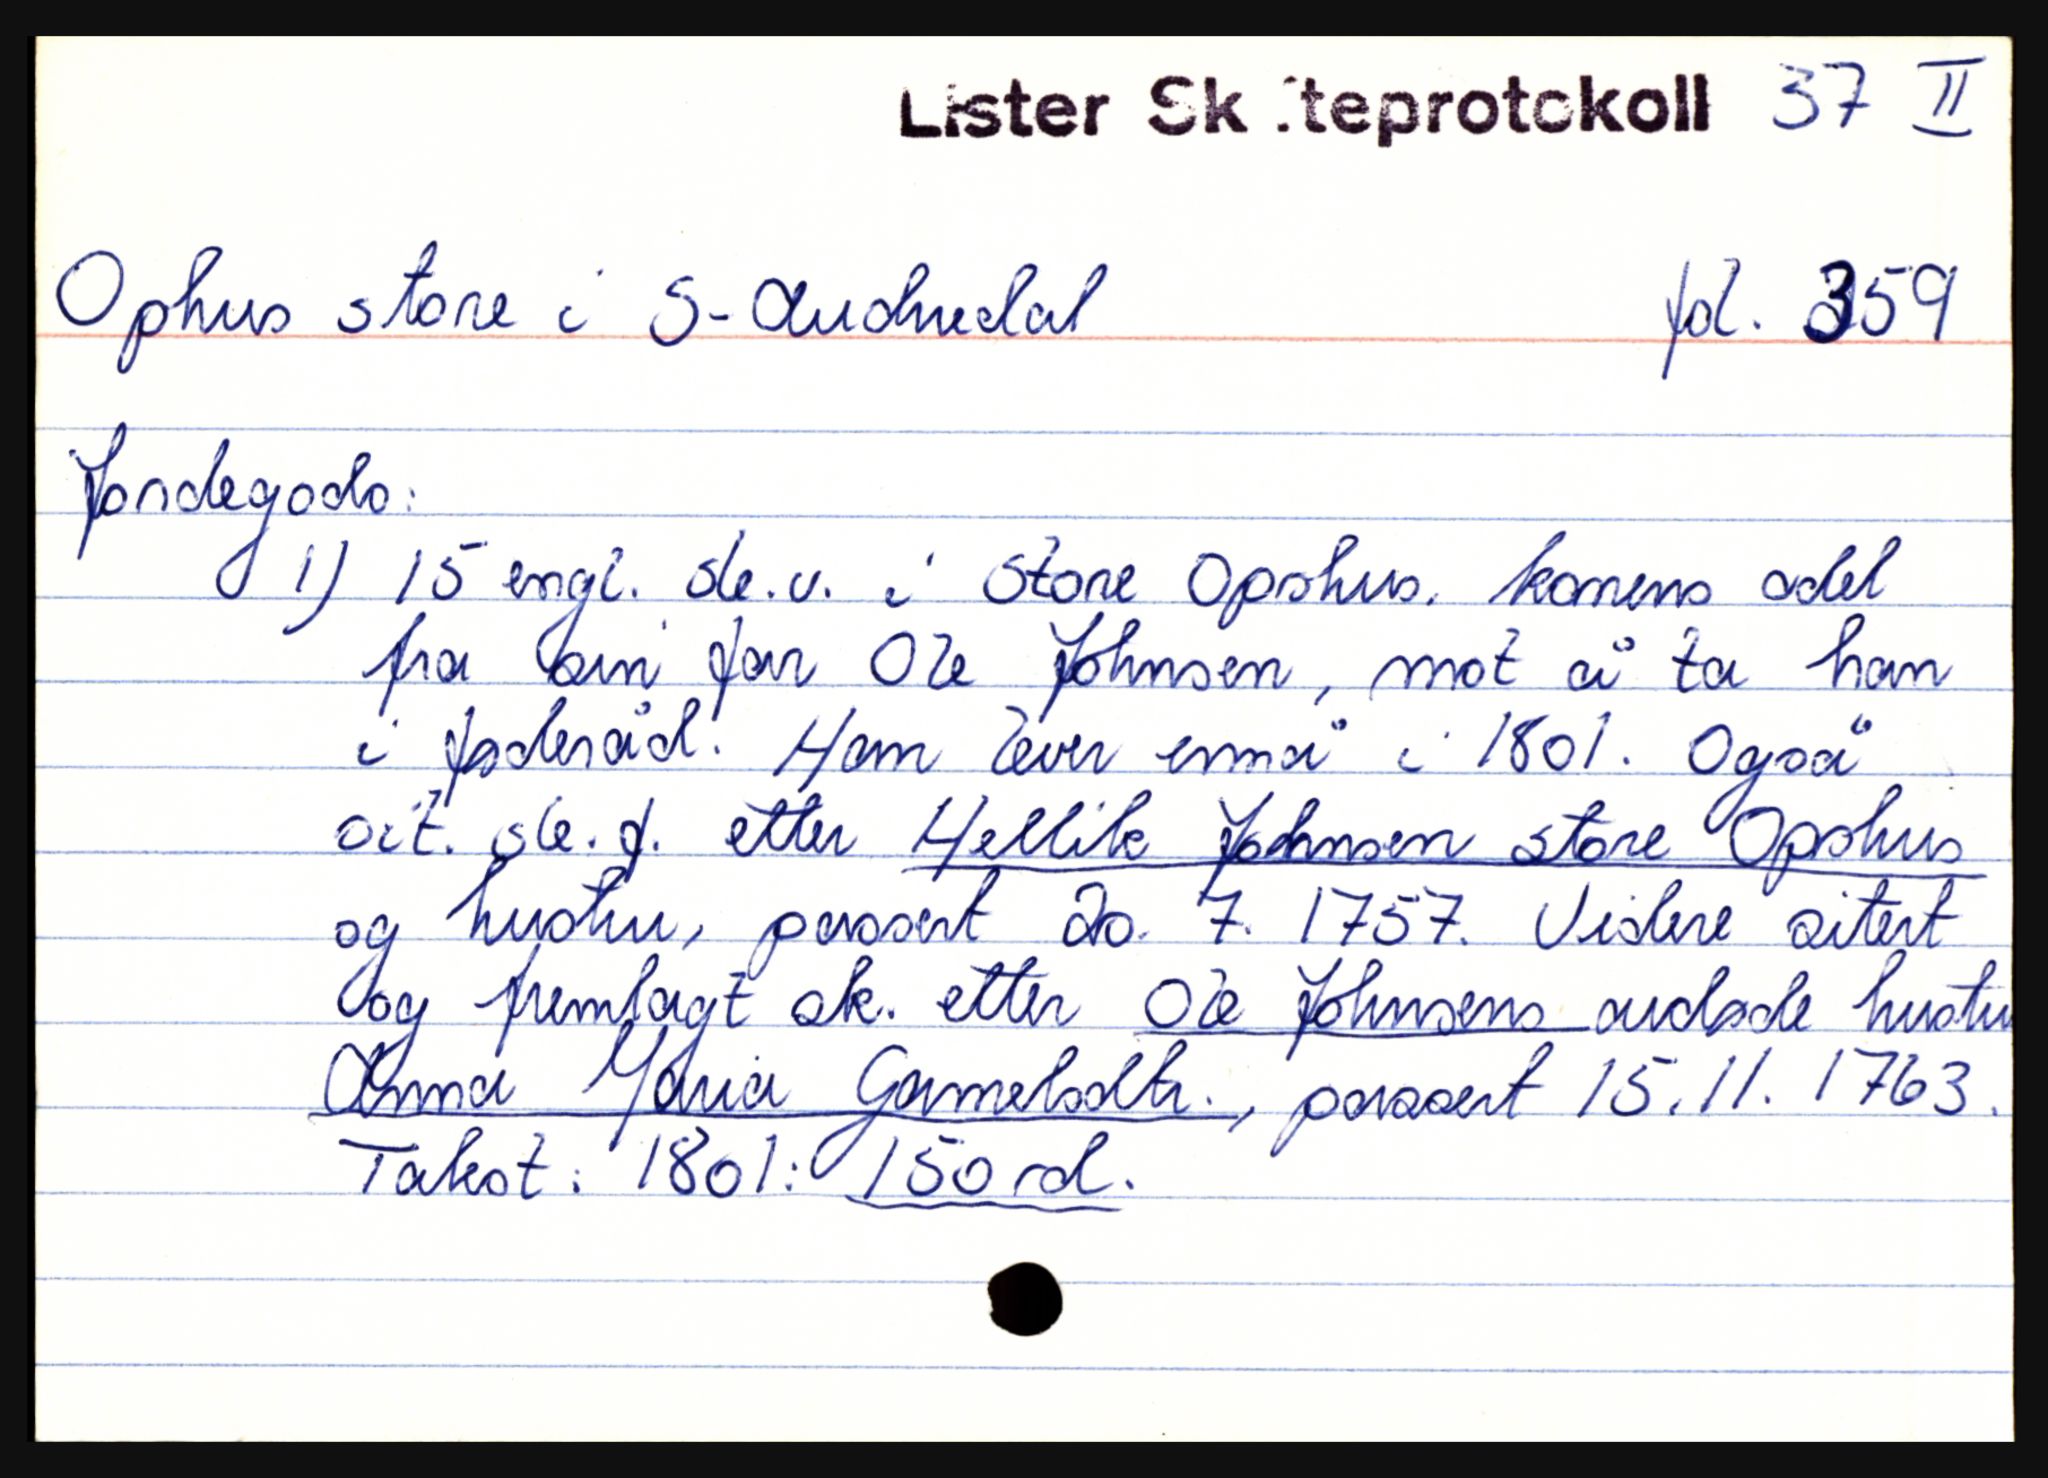 Lister Skifteprotokoll 37 II
Ophus store i S-Audnedal fol. 359
Jordegods:
1) 15 engl. sk.v. i Store Opshus. konens odel
fra sin far Ole Johnsen, mot å ta han
i foderåd. Han lever ennå i 1801. Også
cit. sk.f. etter Hellik Johnsen store Opshus
og hustru, passert 20. 7. 1757. Videre sitert
og fremlagt sk. etter Ole Johnsens avdøde hustru
Anna Maria Gamelsdtr., passert 15.11. 1763.
Takst: 1801: 150 rd.